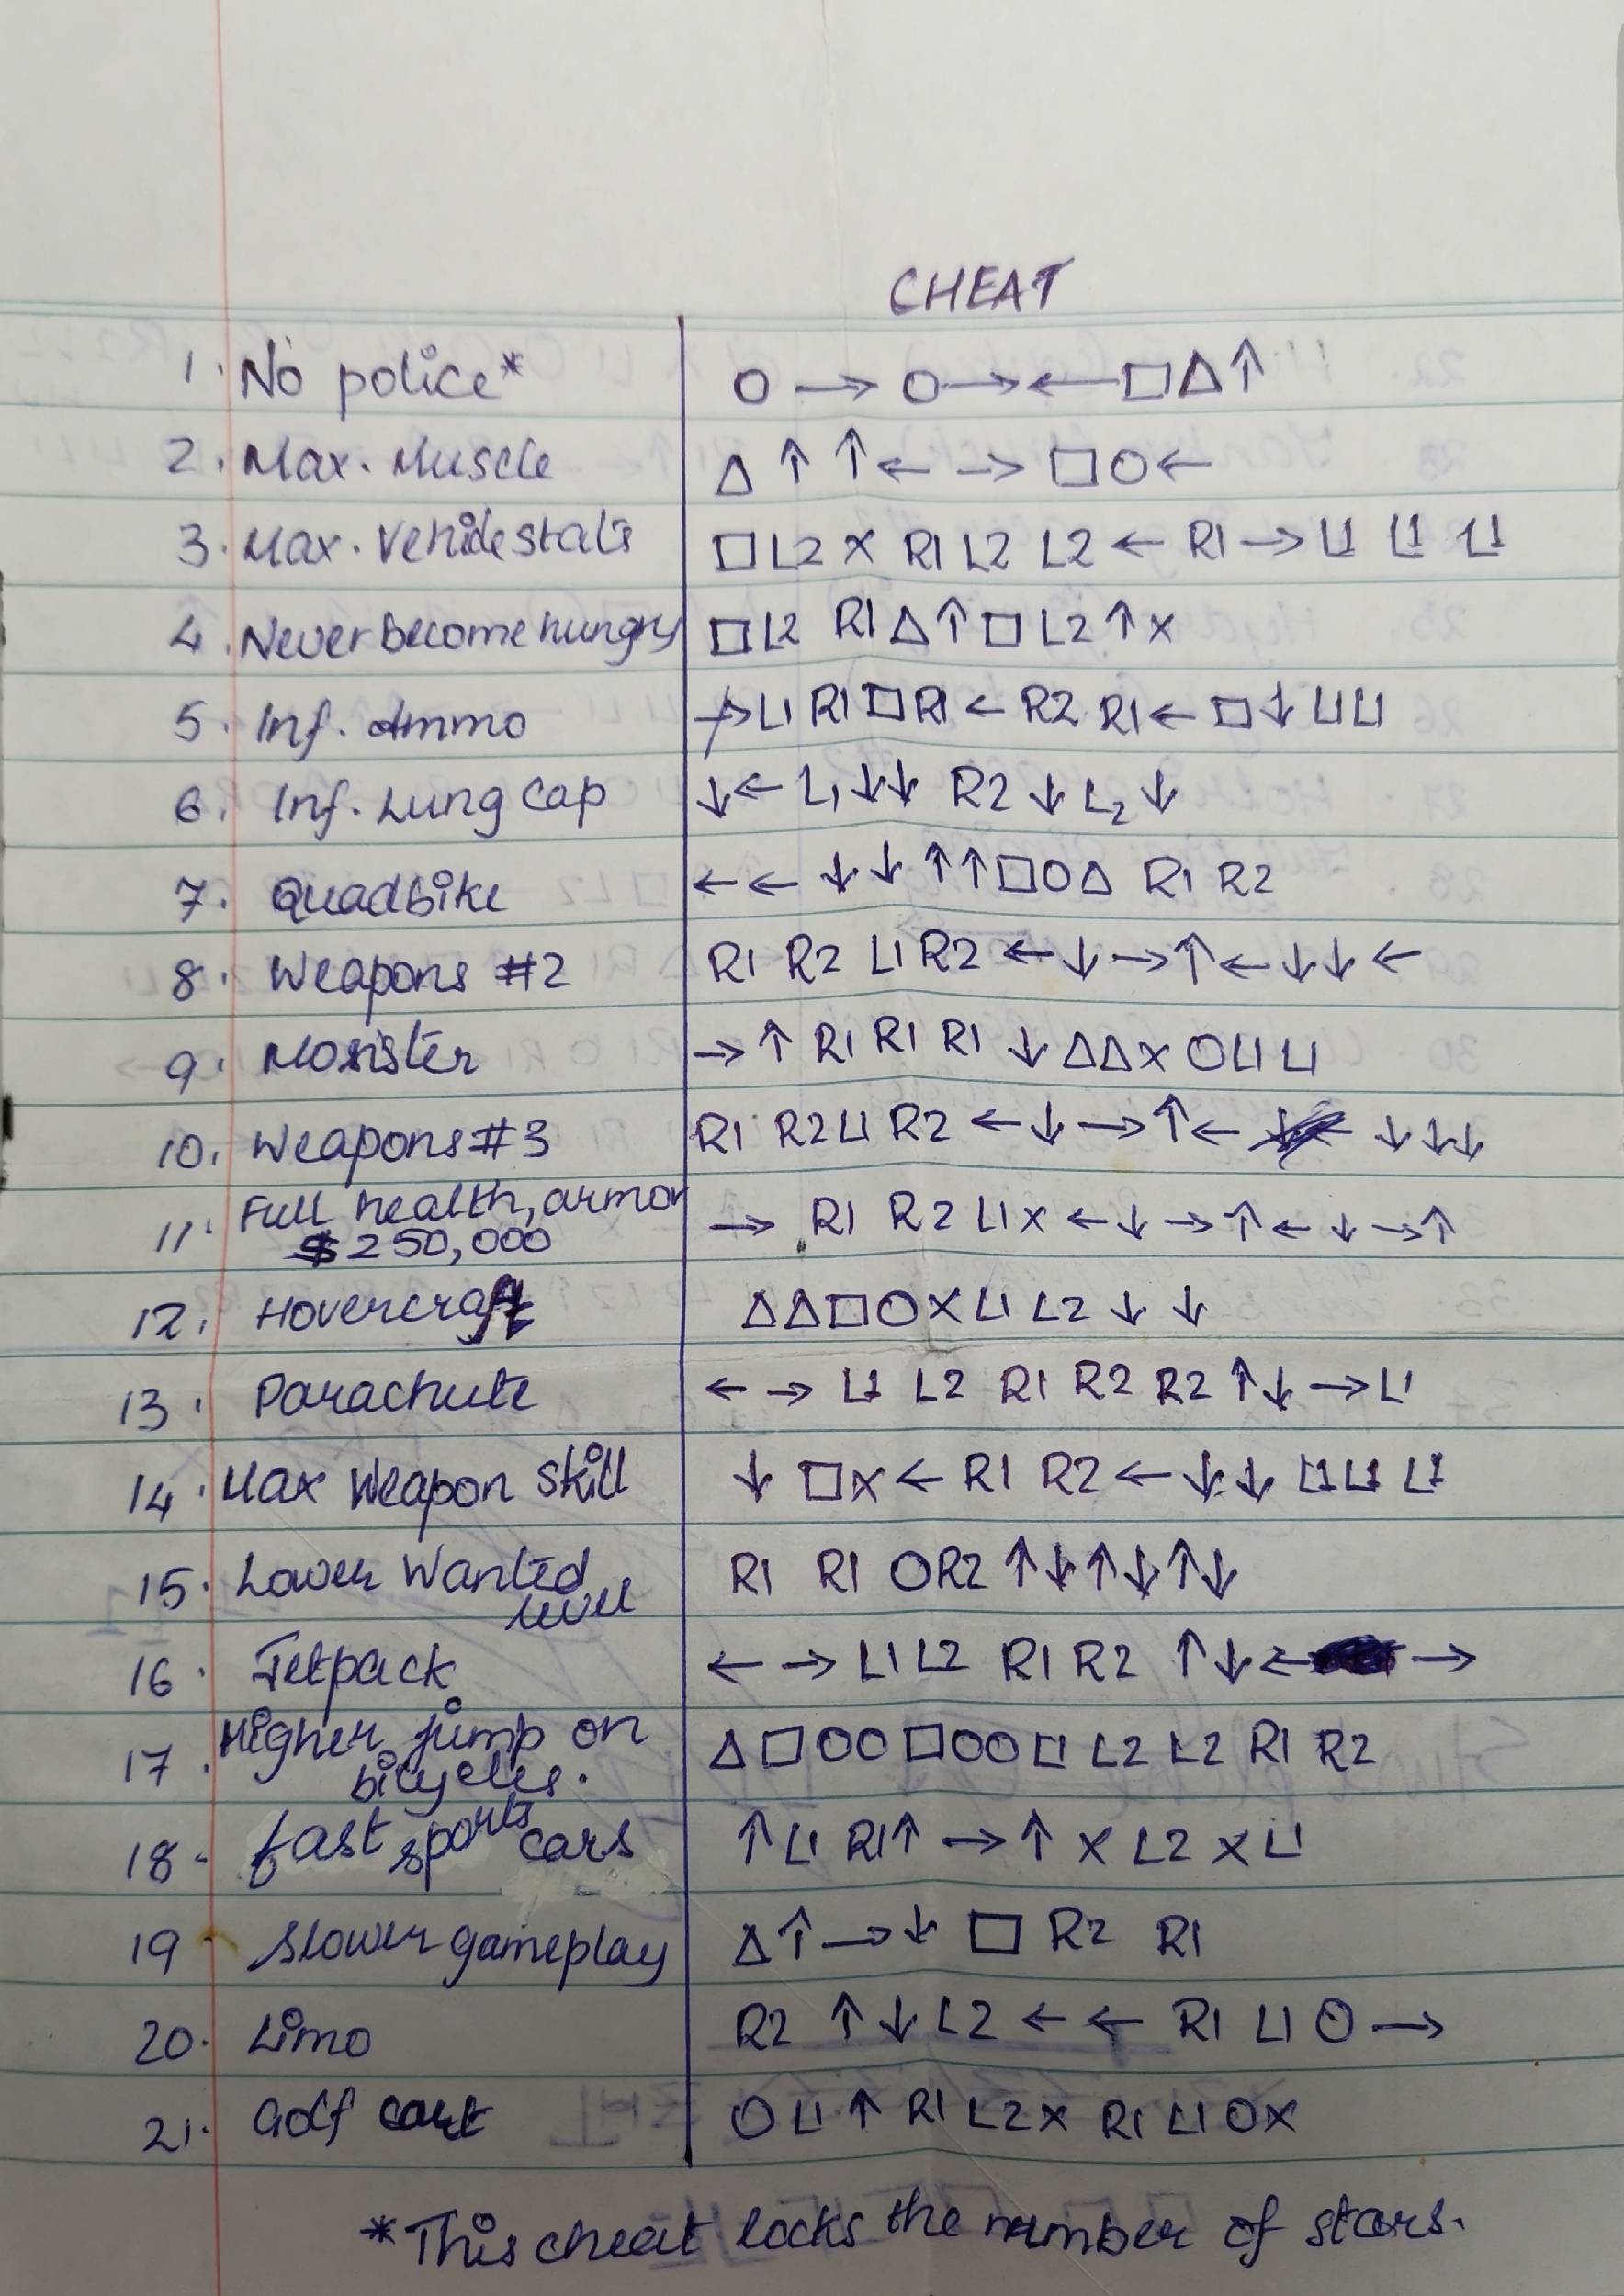 CHEAT
1. No police* ○ → ○ → ← □ △ ↑
2. Max. Muscle △ ↑ ↑ ← → □ ○ ←
3. Max. Vehicle stats □ L2 X R1 L2 L2 ← R1 → L1 L1 L1
4. Never become hungry □ L2 R1 △ ↑ □ L2 ↑ X
5. Inf. Ammo → L1 R1 □ R1 ← R2 R1 ← □ ↓ L1 L1
6. Inf. Lung Cap ↓ ← L1 ↓ ↓ R2 ↓ L2 ↓
7. Quadbike ← ← ↓ ↓ ↑ ↑ □ ○ △ R1 R2
8. Weapons #2 R1 R2 L1 R2 ← ↓ → ↑ ← ↓ ↓ ←
9. Monster → ↑ R1 R1 R1 ↓ △ △ X ○ L1 L1
10. Weapons #3 R1 R2 L1 R2 ← ↓ → ↑ ← ↓ ↓ ↓
11. Full health, armor
$250,000 → R1 R2 L1 X ← ↓ → ↑ ← ↓ → ↑
12. Hovercraft △ △ □ ○ X L1 L2 ↓ ↓
13. Parachute ← → L1 L2 R1 R2 R2 ↑ ↓ → L1
14. Max Weapon Skill ↓ □ X ← R1 R2 ← ↓ ↓ L1 L1 L1
15. Lower Wanted
level R1 R1 ○ R2 ↑ ↓ ↑ ↓ ↑ ↓
16. Jetpack ← → L1 L2 R1 R2 ↑ ↓ ← →
17. Higher jump on
bicycles. △ □ ○ ○ □ ○ ○ L1 L2 L2 R1 R2
18. fast sports cars ↑ L1 R1 ↑ → ↑ X L2 X L1
19 Slower gameplay △ ↑ → ↓ □ R2 R1
20. Limo R2 ↑ ↓ L2 ← ← R1 L1 ○ →
21. Golf cart ○ L1 ↑ R1 L2 X R1 L1 ○ X
*This cheat locks the number of stars.